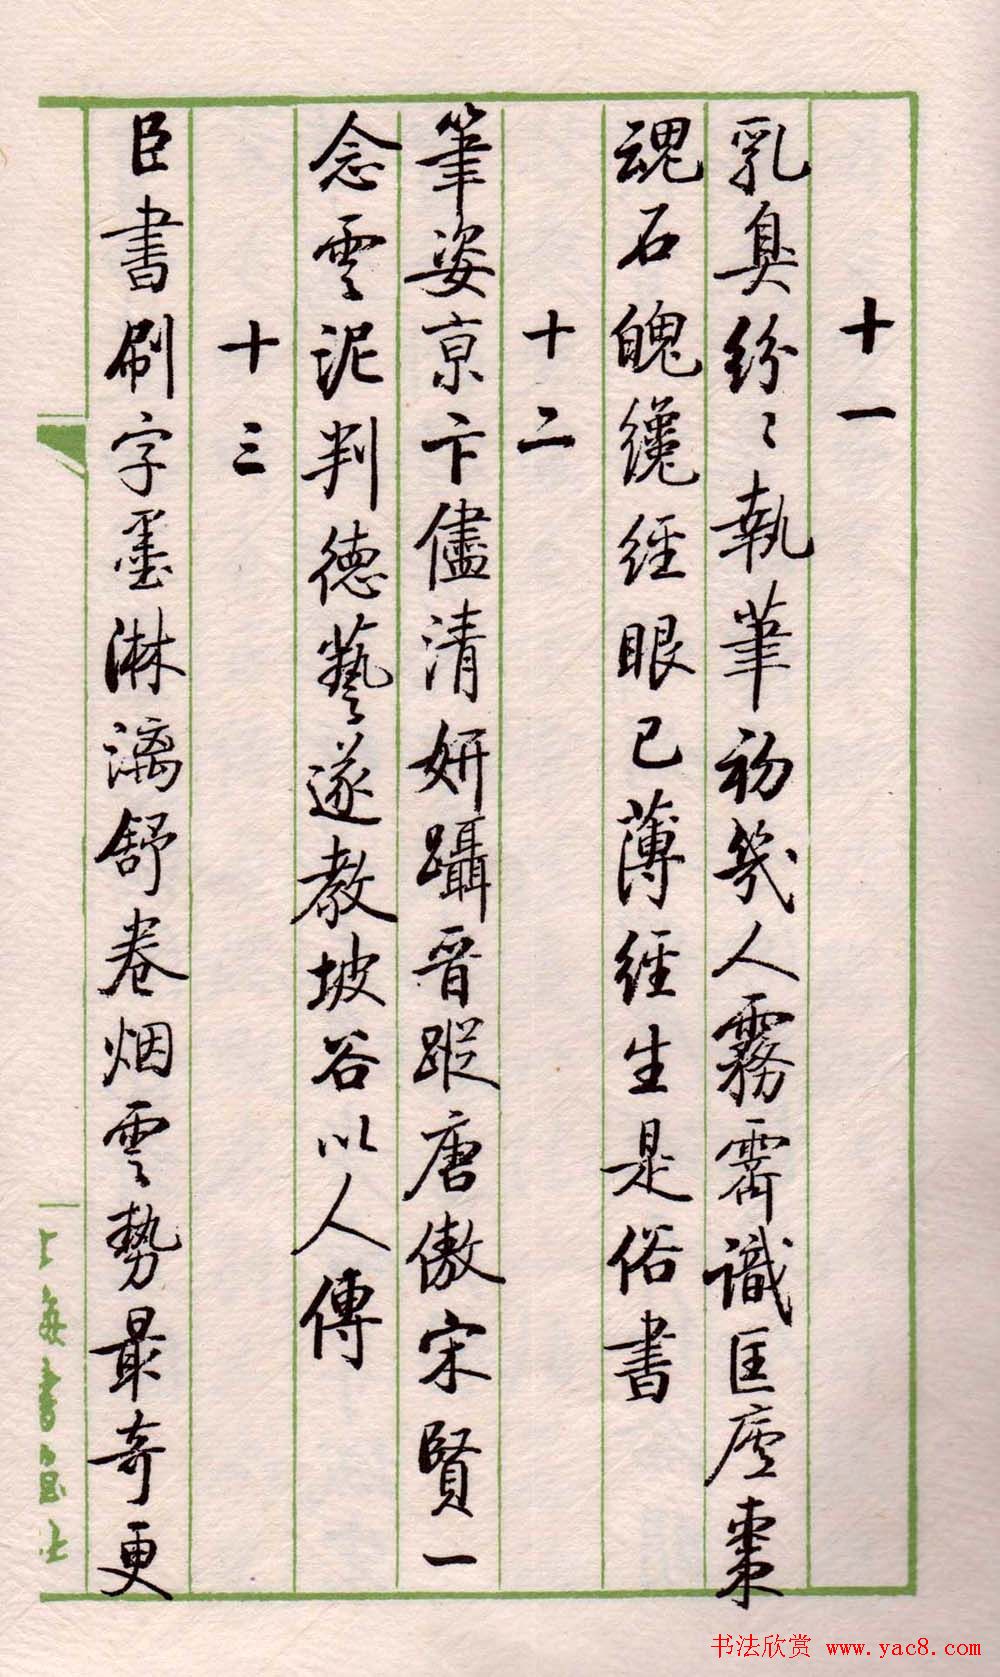 十一
乳臭紛〻執筆初幾人霧霽識匡廬棗
魂石魄纔經眼已薄經生是俗書
十二
筆姿京卞儘清妍躡晉蹤唐傲宋賢一
念雲泥判德藝遂教坡谷以人傳
十三
臣書刷字墨淋漓舒卷烟雲勢最奇更
上海書畫社
书法欣赏 www.yac8.com